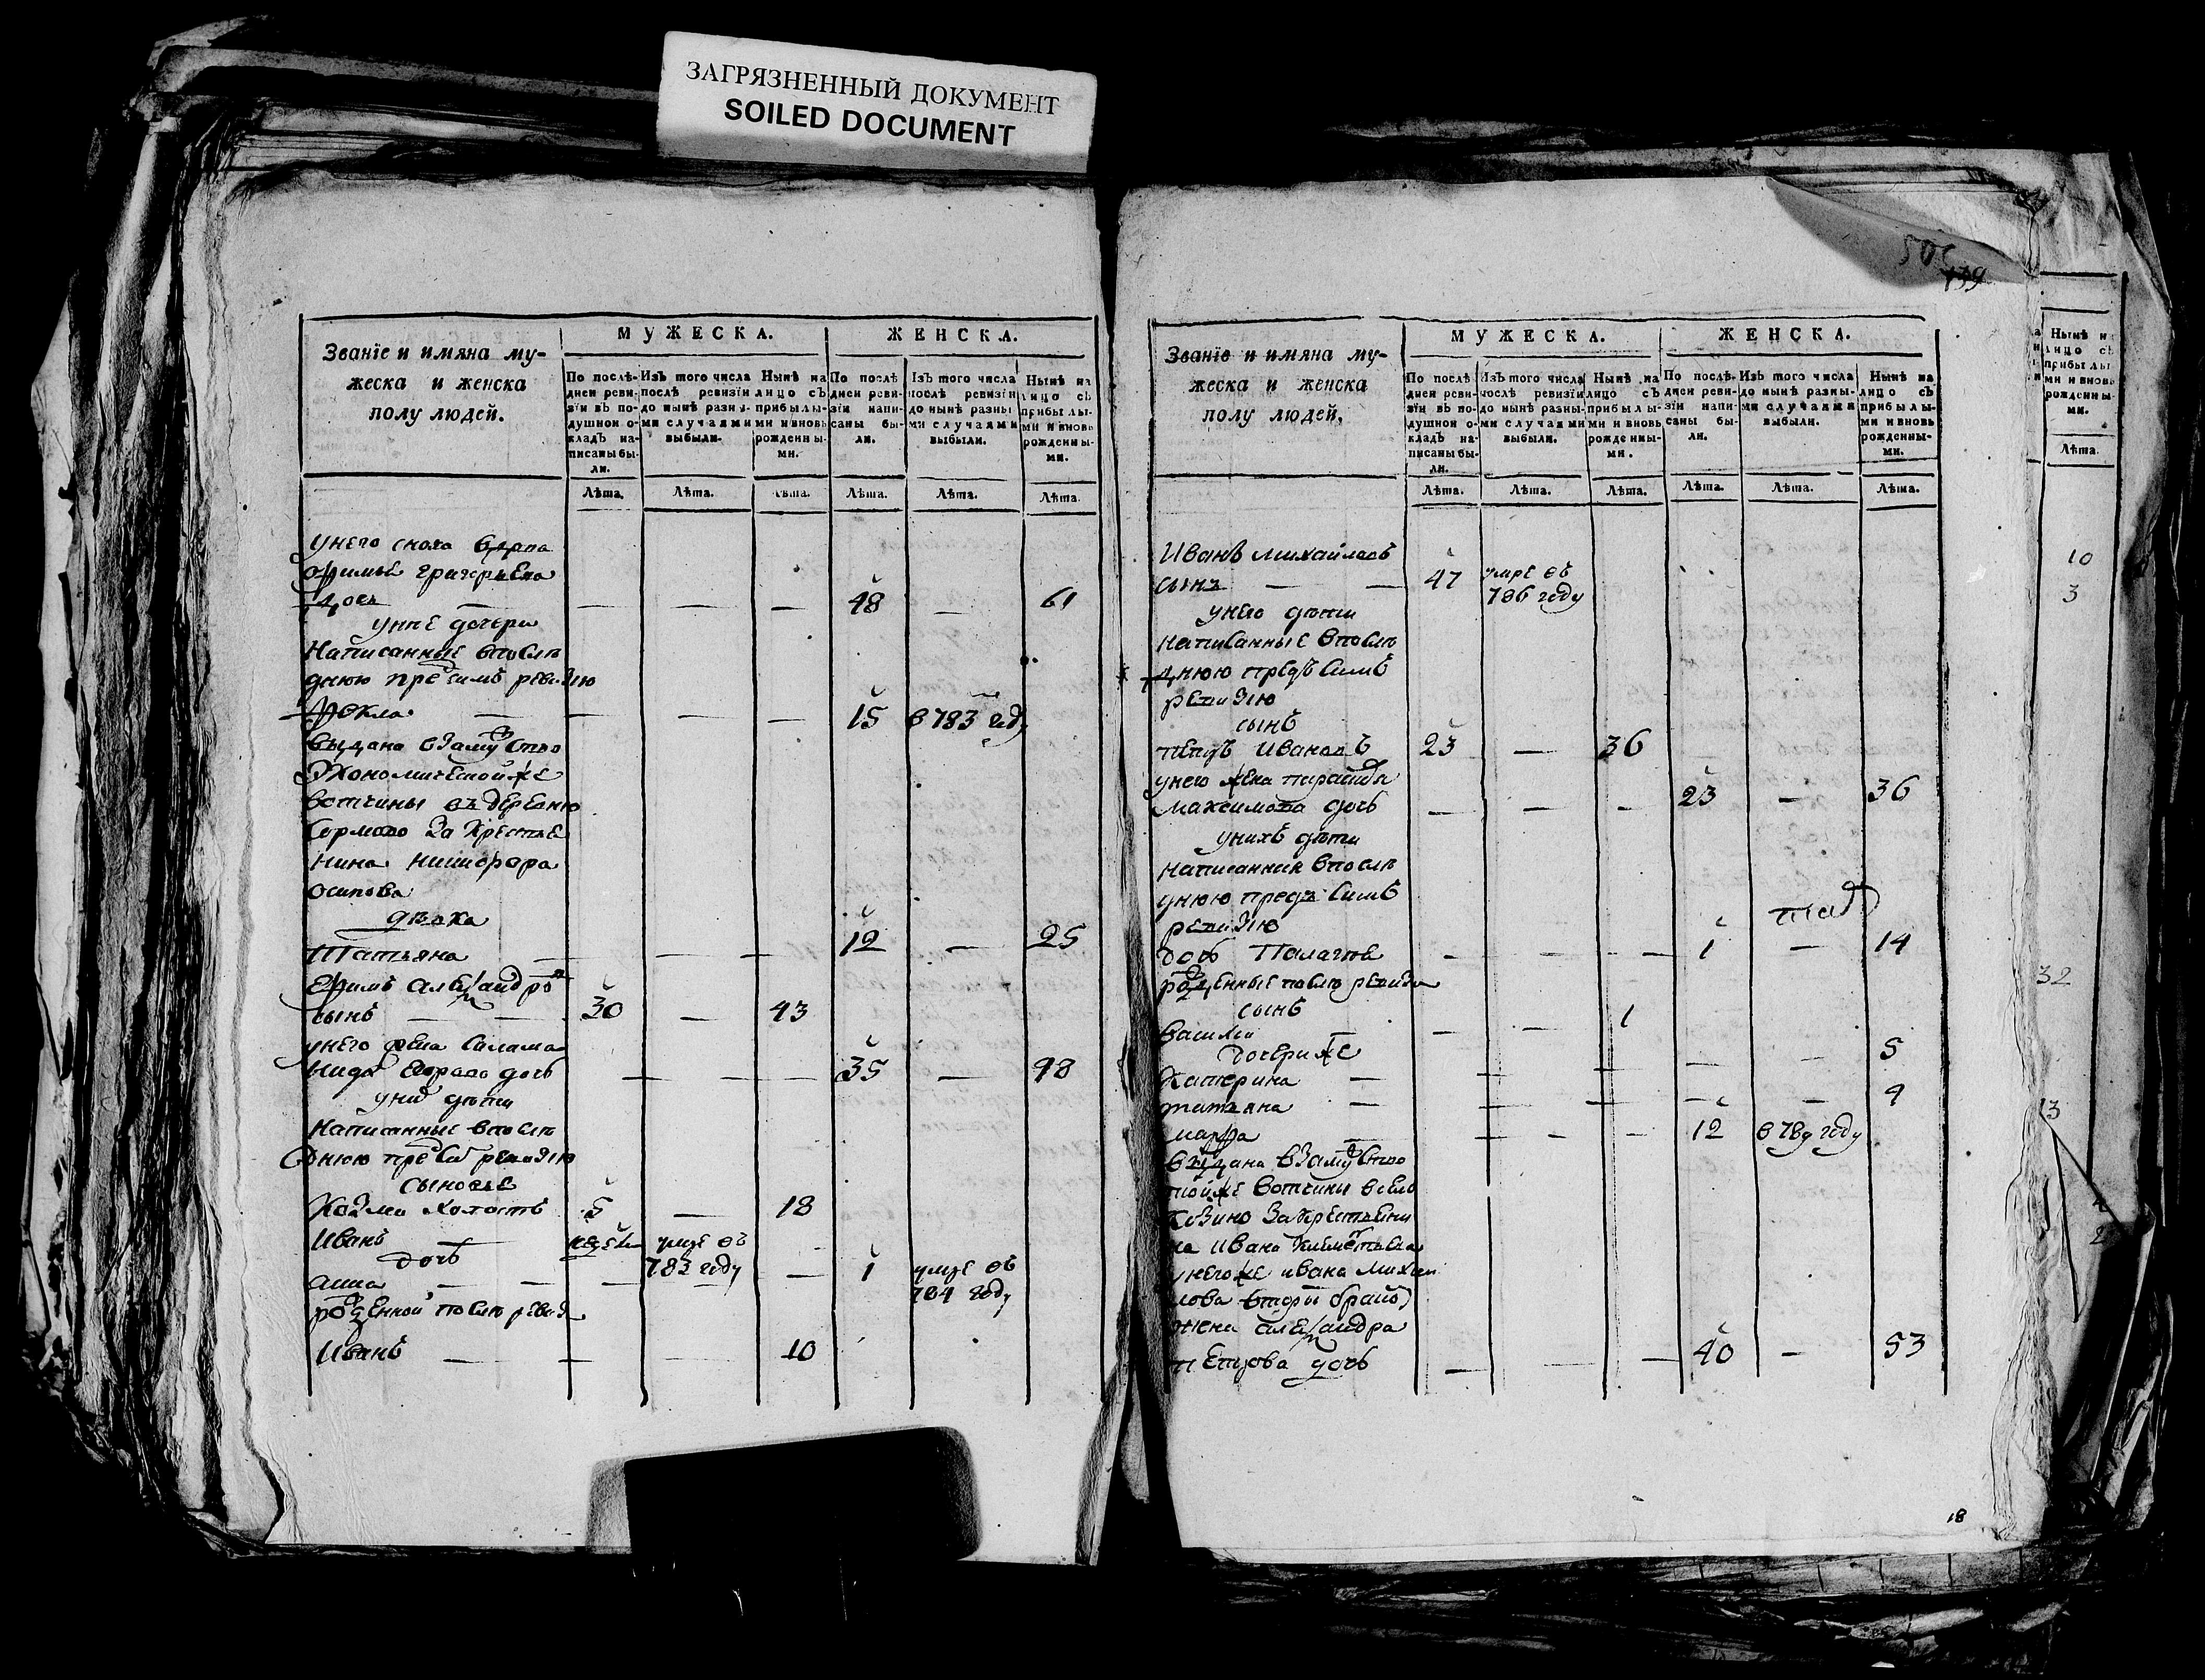 ЗАГРЯЗНЕННЫЙ ДОКУМЕНТ
SOILED DOCUMENT
Званїе и имяна му-
жеска и женска
полу людей.
МУЖЕСКА.
ЖЕНСКА.
По послѣ-
дней реви-
зїи въ по-
душной о-
кладъ на-
писаны бы-
ли.
Изъ того числа
послѣ ревизїи
до нынѣ разны-
ми случаями
выбыли.
Нынѣ на
лицо съ
прибылы-
ми и вновь
рожденны-
ми.
По послѣ
дней реви-
зїи напи-
саны бы-
ли.
Изъ того числа
послѣ ревизїи
до нынѣ разны
ми случаями
выбыли.
Нынѣ на
лицо съ
прибылы-
ми и вновь
рожденны-
ми.
Лѣта. Лѣта. Лѣта. Лѣта. Лѣта. Лѣта.
унего сноха вдова
Офимья григорьева
дочь — — — — 48 — 61
унее дочери
Написанные впослѣ
днюю пред симъ ревизию
Фекла — — — — 15 в 783 году
выдана взамуство
Экономической же
вотчины въ деревню
Сормово за крестье
нина никифора
осипова
дѣвка
Татьяна — — — 12 — 25
Ефимъ александров
сынъ — — 30 — 43
унего жена Саламо
нида Егорова дочь — — — 35 — 48
уних дѣти
Написанные впослѣ
днюю пред сим ревизию
сыновье
Козма холостъ 5 — 18
Иванъ недель умре въ
783 году —
дочь
анна — — — 1 умре въ
784 году
рожденной послѣ ревиз
Иванъ — — — 10
505
139
Званїе и имяна му-
жеска и женска
полу людей.
МУЖЕСКА.
ЖЕНСКА.
По послѣ-
дней реви-
зїи въ по-
душной о-
кладъ на-
писаны бы-
ли.
Изъ того числа
послѣ ревизїи
до нынѣ разны-
ми случаями
выбыли.
Нынѣ на
лицо съ
прибылы-
ми и вновь
рожденны-
ми.
По послѣ-
дней реви-
зїи напи-
саны бы-
ли.
Изъ того числа
до нынѣ разны-
ми случаями
выбыли.
Нынѣ на
лицо съ
прибылы-
ми и вновь
рожденны-
ми.
Лѣта. Лѣта. Лѣта. Лѣта. Лѣта. Лѣта.
Иванъ михайловъ
сынъ — — 47 умре въ
786 году
унего дѣти
написанные впослѣ
днюю предъ симъ
ревизию
сынъ
петръ ивановъ 23 — 36
унего жена парасковья
максимова дочь — — — 23 — 36
унихъ дѣти
написанная впослѣ
днюю предъ симъ
ревизию
дочь Палагея — — — — 1 — 14
рожденные послѣ ревизи
сынъ
василей — — 1
дочери же
Катерина — — — — — 5
татьяна — — — — — 9
марфа — — — — 12 в 789 году
выдана взамуство
тойже вотчины всело
Козино за крестьени
на ивана климентьева
унегоже ивана михаи
лова
жена александра
петрова дочь — — — 40 — 53
18
Нынѣ на
лицо съ
прибылы
ми и вновь
рожденны-
ми.
Лѣта.
10
3
32
13